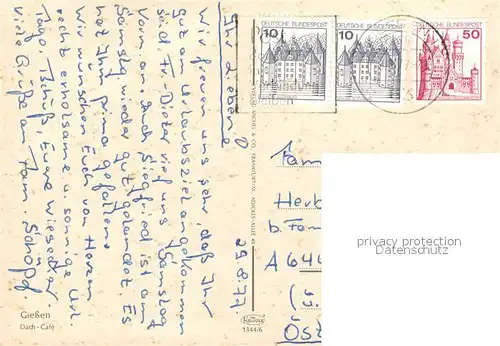 Ihr Lieben!
29.8.77
Wir freuen uns sehr, daß Ihr
gut am Urlaubsziel angekommen
seid. Fr. Dieter rief uns Samstag
Vorm. an. Auch Siegfried ist am
Samstag wieder gut gelandet. Es
hat Ihm prima gefallen.
Wir wünschen Euch von Herzen
recht erholsame u. sonnige Url.
Tage. Tschüß, Eure
Viele Grüße an Fam. Schöpf.
Gießen
Dach-Café
DEUTSCHE BUNDESPOST
10
DEUTSCHE BUNDESPOST
10
DEUTSCHE BUNDESPOST
50
Fam
Herb
b. Fam
A 644
Öst
1344/6
privacy protection
Datenschutz